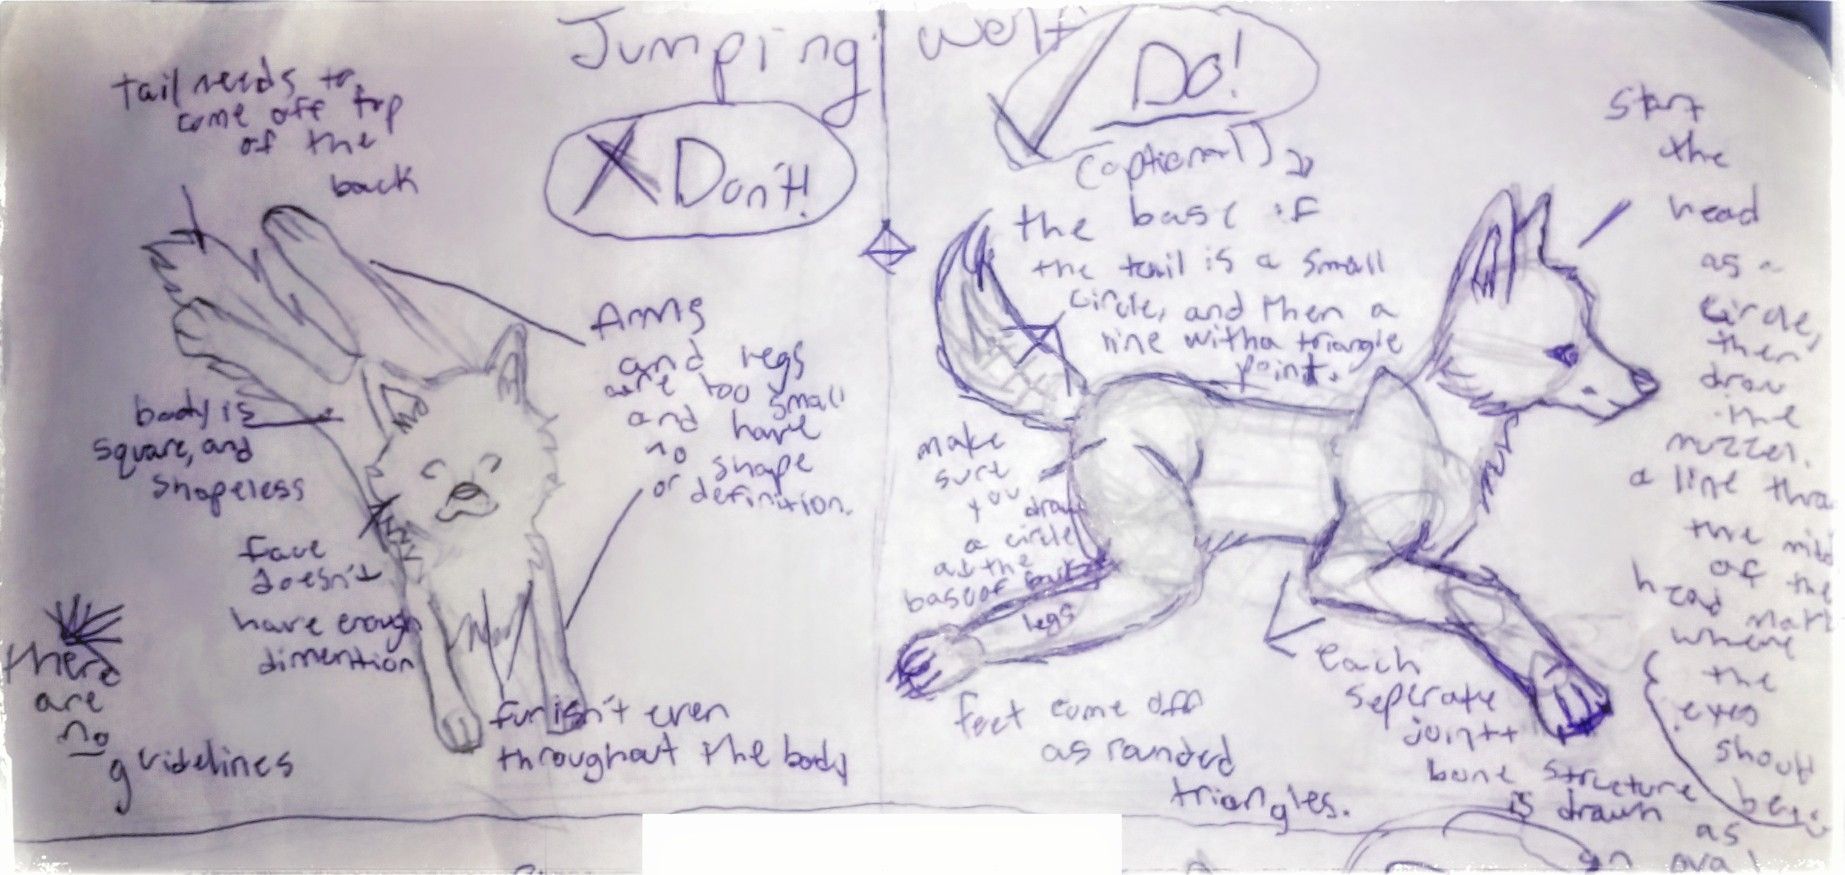 Jumping wolf
X Don't!
tail needs to
come off top
of the
back
Arms
and legs
are too small
and have
no shape
or definition.
body is
square, and
shapeless
face
doesn't
have enough
dimention
there
are
no
guidelines
fur isn't even
throughout the body
Do!
(optional)
the base of
the tail is a small
circle, and then a
line with a triangle
point.
make
sure
you
draw
a circle
at the
base of back
legs
feet come off
as rounded
triangles.
each
seperate
joint
bone structure
is drawn
as
an oval
Start
the
head
as a
circle,
then
draw
the
muzzel.
a line thru
the mid
of the
head mark
where
the
eyes
should
be